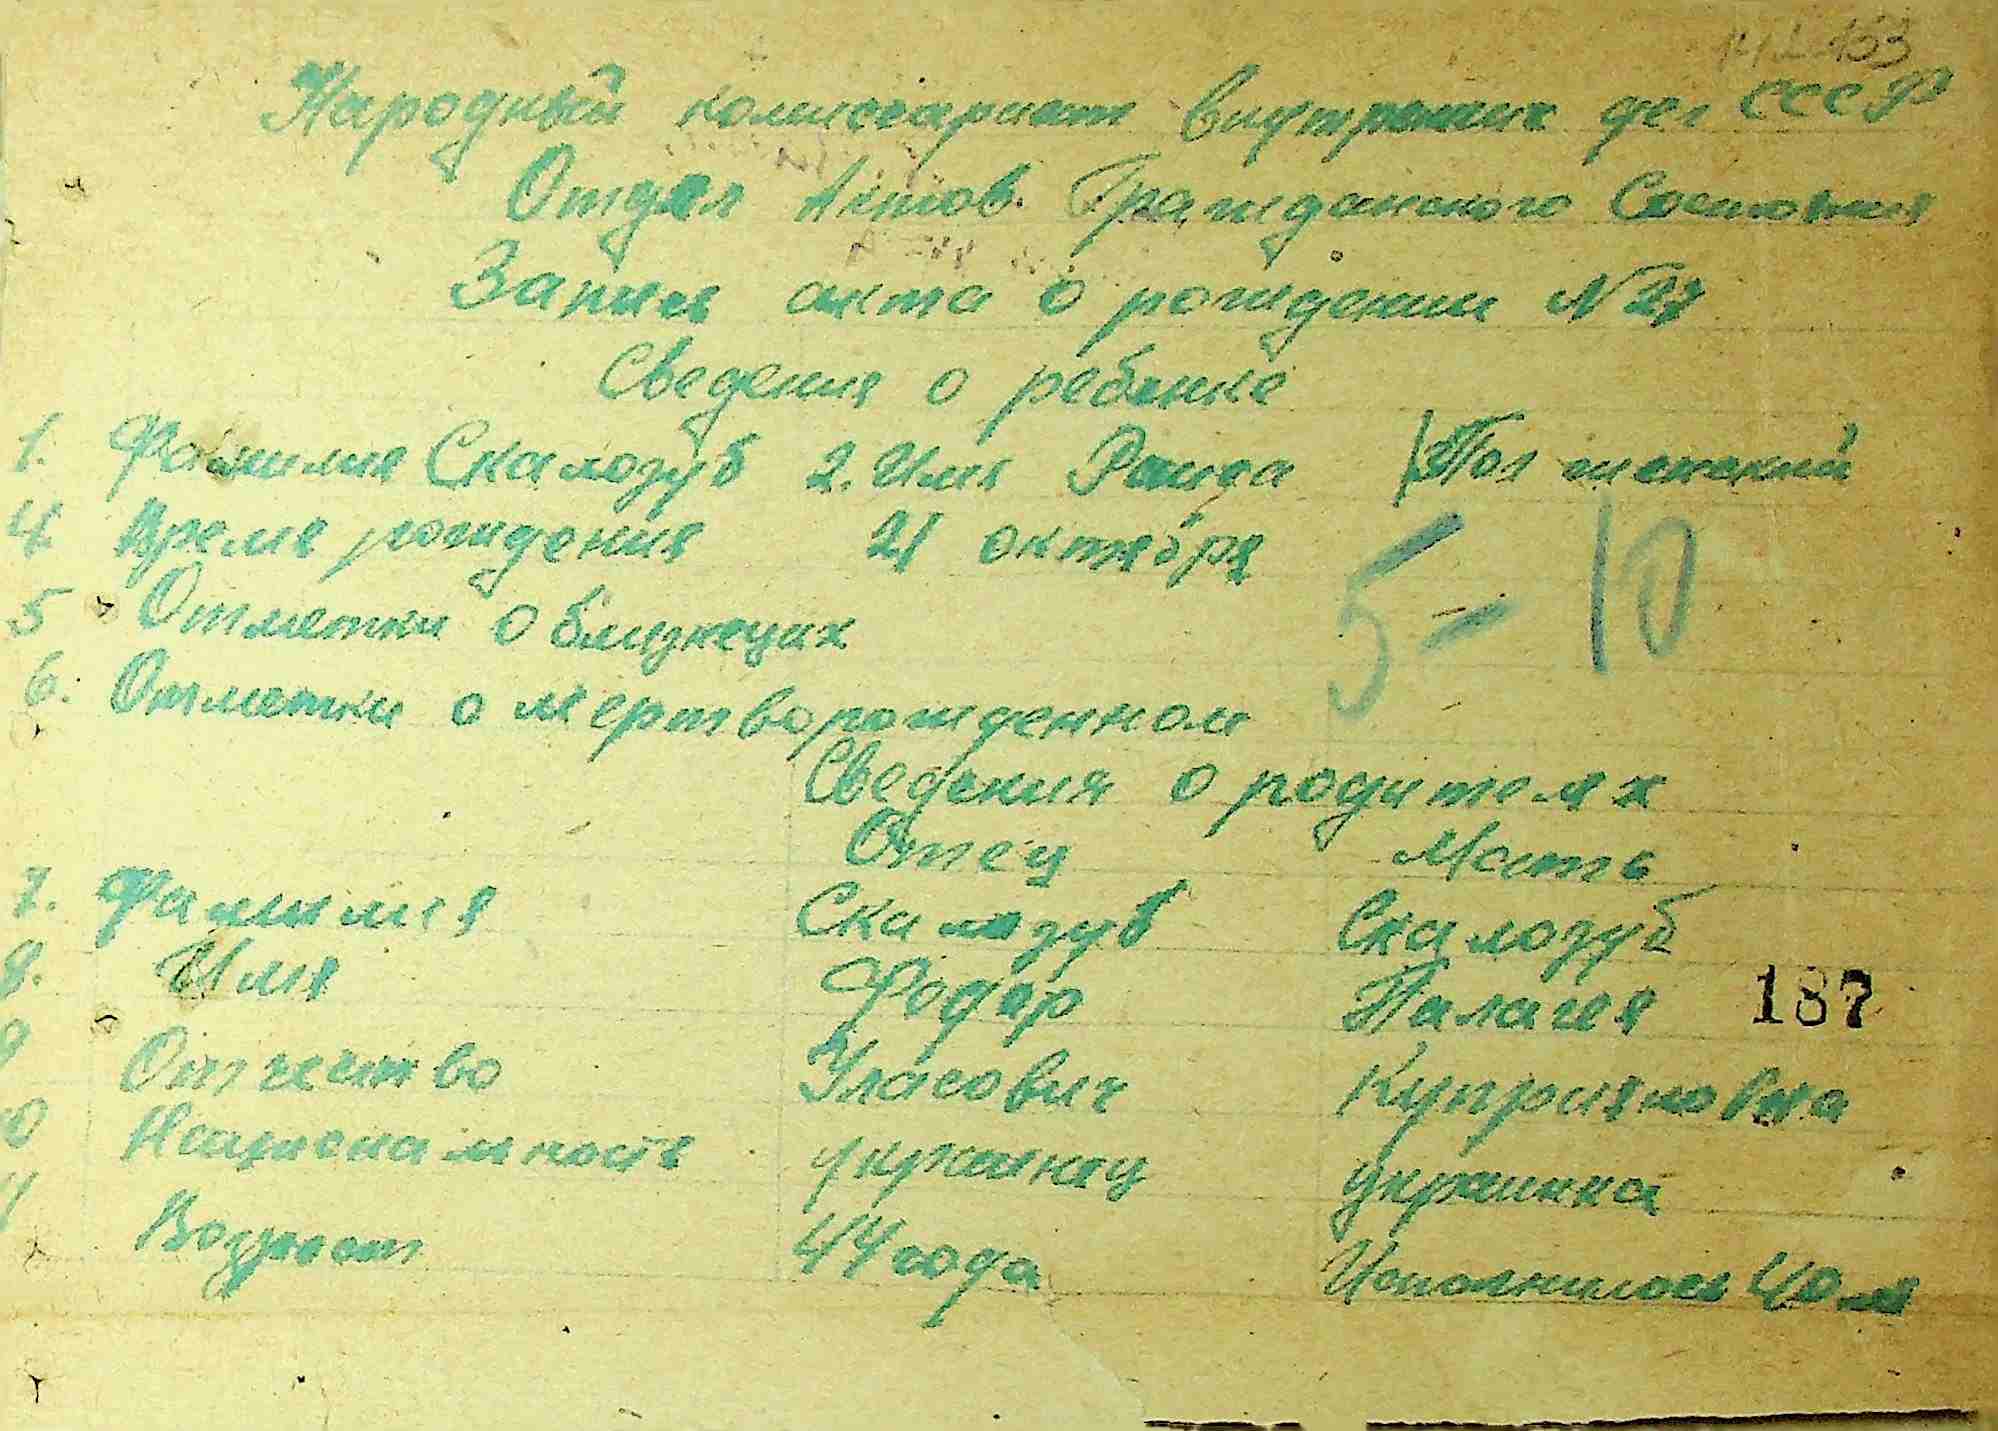 153
Народный комиссариат внутрених дел СССР
Отдел Актов Гражданского Состояния
Запись акта о рождении №27
Сведения о ребенке
1. Фамилия Скалозуб 2. Имя Раида Пол женский
4. Время рождения 21 октября
5 Отметки о близнецах
5-10
6. Отметки о мертворожденном
Сведения о родителях
Отец Мать
7. Фамилия Скалозуб Скалозуб
8. Имя Федор Палагея 187
9 Отчество Уласович Куприяновна
10 Национальность украинец украинка
11 Возраст 44 года Исполнилось 40 л